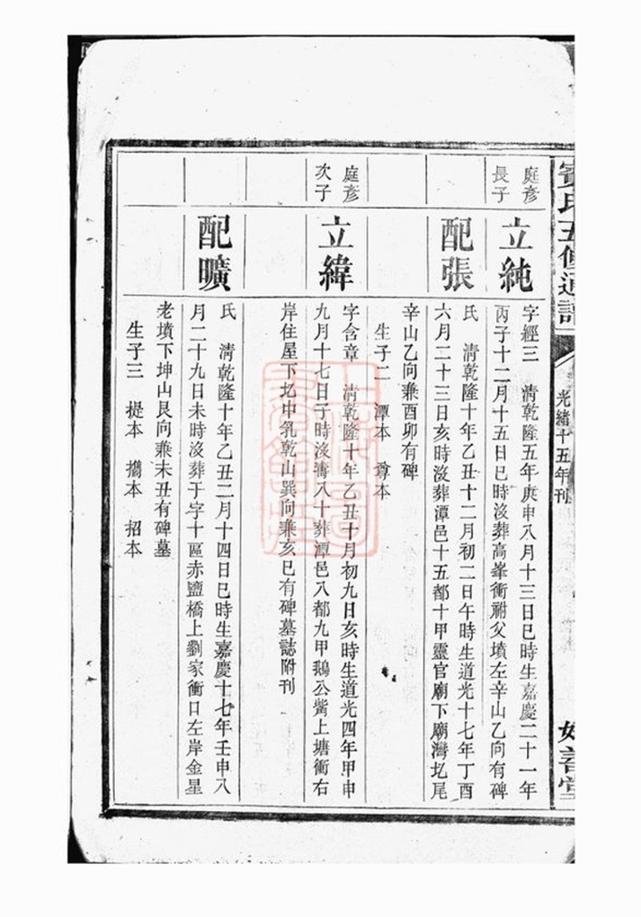 氏五修通譜
光緒十五年刊
善堂
庭彥
長子
立純
字經三 清乾隆五年庚申八月十三日巳時生嘉慶二十一年
丙子十二月十五日巳時沒葬高峯衝祔父墳左辛山乙向有碑
配張
氏 清乾隆十年乙丑十二月初二日午時生道光十七年丁酉
六月二十三日亥時沒葬潭邑十五都十甲靈官廟下廟灣圫尾
辛山乙向兼酉卯有碑
生子二 潭本 尊本
庭彥
次子
立緯
字含章 清乾隆十年乙丑十月初九日亥時生道光四年甲申
九月十七日子時沒壽八十葬潭邑八都九甲鵝公嘴上塘衝右
岸住屋下圫中乳乾山巽向兼亥巳有碑墓誌附刊
配曠
氏 清乾隆十年乙丑二月十四日巳時生嘉慶十七年壬申八
月二十九日未時沒葬于字十區赤鹽橋上劉家衝口左岸金星
老墳下坤山艮向兼未丑有碑墓
生子三 禔本 攜本 招本